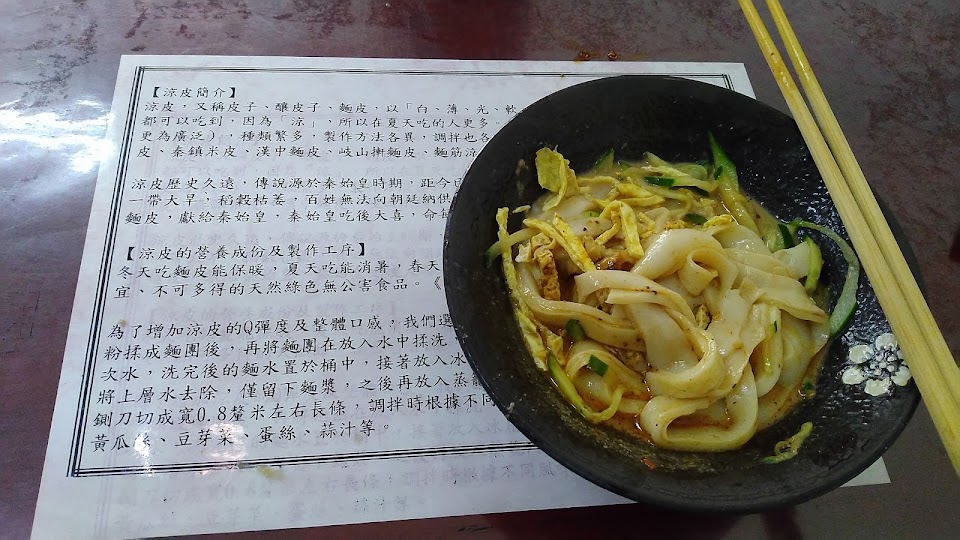 【涼皮簡介】
涼皮，又稱皮子、釀皮子、麵皮，以「白、薄、光、軟、
都可以吃到，因為「涼」，所以在夏天吃的人更多，
更為廣泛），種類繁多，製作方法各異，調拌也各
皮、秦鎮米皮、漢中麵皮、岐山擀麵皮、麵筋涼
涼皮歷史久遠，傳說源於秦始皇時期，距今已
一帶大旱，稻穀枯萎，百姓無法向朝廷納供
麵皮，獻給秦始皇，秦始皇吃後大喜，命每
【涼皮的營養成份及製作工序】
冬天吃麵皮能保暖，夏天吃能消暑，春天
宜、不可多得的天然綠色無公害食品。《
為了增加涼皮的Q彈度及整體口感，我們選
粉揉成麵團後，再將麵團在放入水中揉洗
次水，洗完後的麵水置於桶中，接著放入冰
將上層水去除，僅留下麵漿，之後再放入蒸籠
鍘刀切成寬0.8釐米左右長條，調拌時根據不同
黃瓜絲、豆芽菜、蛋絲、蒜汁等。